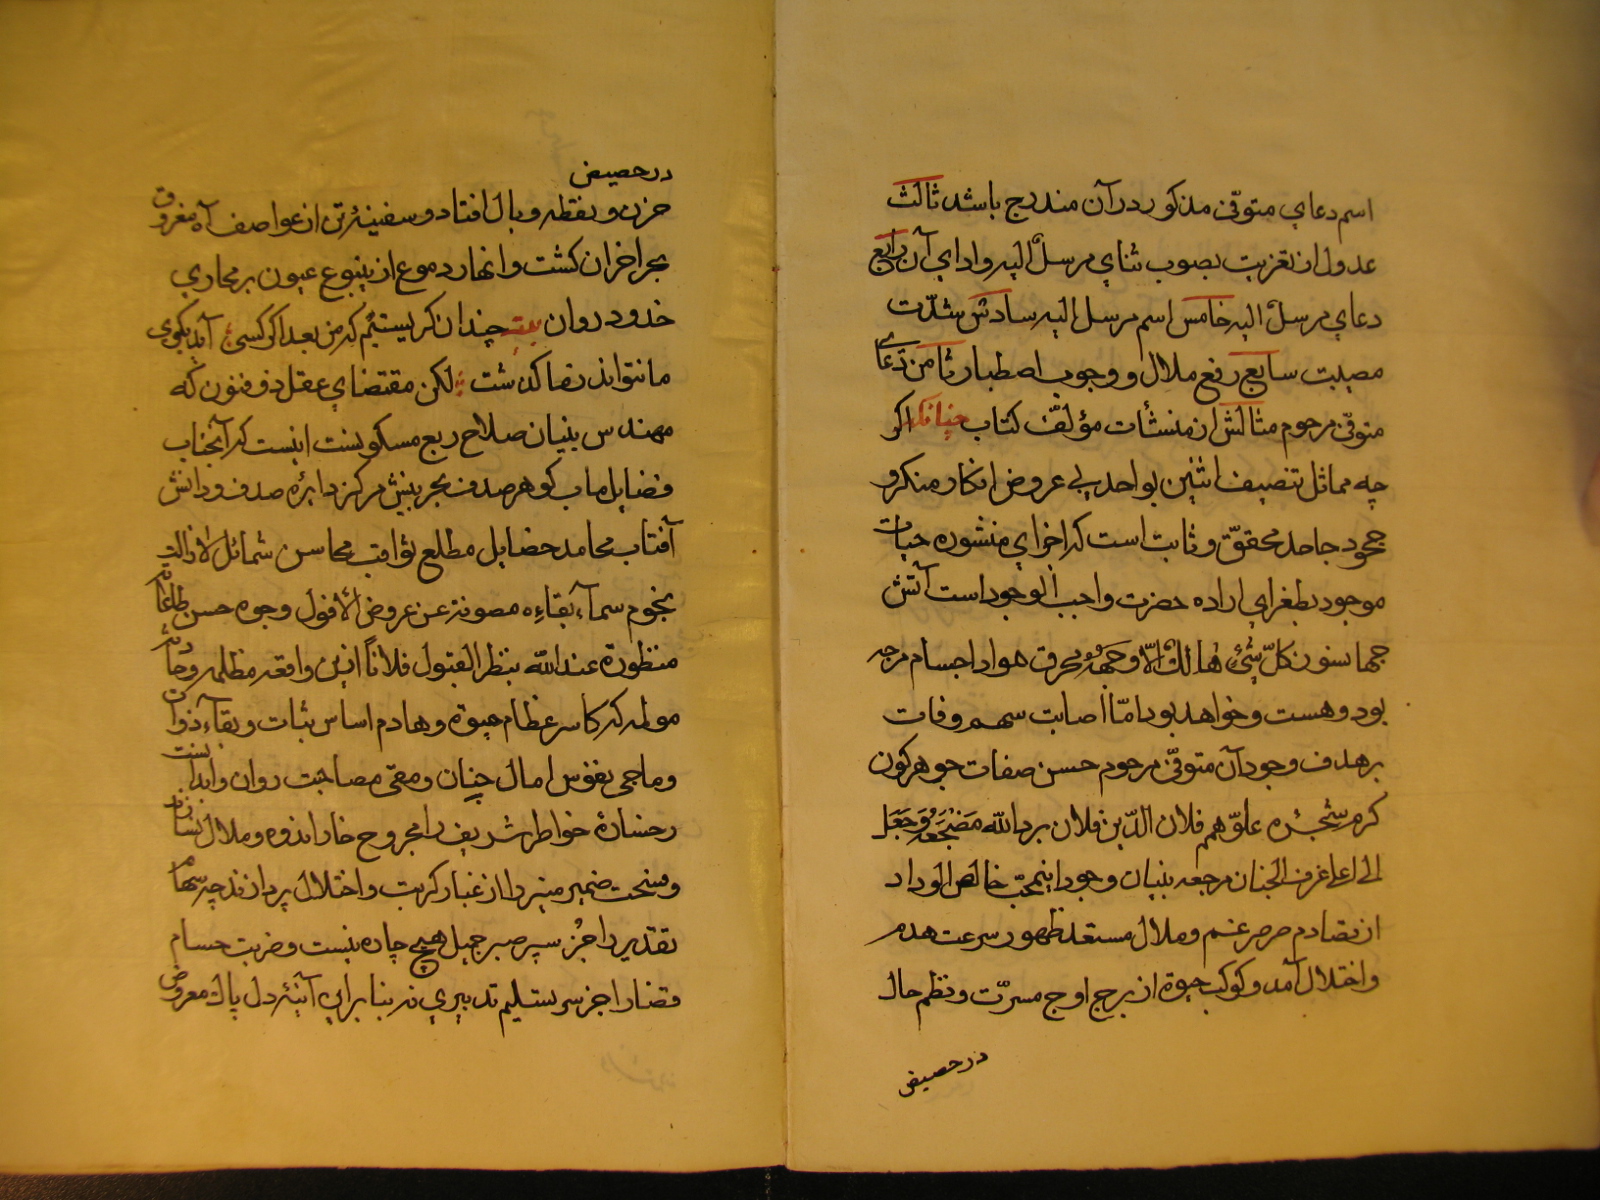 اسم دعاي متوفّی مذکور در آن مندرج باشد ثالث
عدول از تعزیت بصوب ثناي مرسلٌ الیه و اداي آن رابع
دعاي مرسلٌ الیه خامس اسم مرسل الیه سادس شدّت
مصیبت سابع رفع ملال و وجوب اصطبار ثامن دعاء
متوفّی مرحوم مثالش از منشأت مؤلّف کتاب چنانکه اکر
چه مماثل تنصیف اثنین بواحد بي عروض انکار منکر و
جحود جاحد محقّق و ثابت است که اجزاي منشوره حیات
موجود بطغراي اراده حضرت واجب الوجود است آتش
جهانسوز کلّ شئ هالك الّا وجهه محرق هواد اجسام مرجه
بود و هست و خواهد بود امّا اصابت سهم وفات
بر هدف وجود آن متوفّی مرحوم حسن صفات جوهر کون
کرم شجره علوّ همم فلان الدّین فلان برد الله مضجعه و جعل
الی اعلی غرف الجنان مرجعه بنیان وجود اینمحبّ خالص الوداد
از تصادم صرصر غم و ملال مستعد ظهور سرعت هدم
و اختلال آمد و کوکب حیوة از برج اوج مسرّت و نظم حال
در حصیص
در حصیص
حزن و نقطه وبال افتاد و سفینۀ تن از عواصف آه مغروق
بحر احزان کشت و انهار دموع از ینبوع عیون بر مجاري
خدود روان بیت چندان کریستیم که من بعد اکر کسی آید بکوی
ما نتواند ز ما کذشت لکن مقتضاي عقل ذو فنون که
مهندس بنیان صلاح ربع مسکونست اینست که آنجناب
فضایل ماب کوهر صدف بحر بینش مرکز دایره صدف و دانش
آفتاب محامد خصایل مطلع ثواقب محاسن شمائل لا زالت
نجوم سمآء بقاءه مصونة عن عروض الأفول و وجوه حسن طاعاته
منظورة عند الله بنظر القبول فلاناً ازین واقعه مظلمه و حادثه
مولمه که کاسر عظام حیوة و هادم اساس ثبات و بقاء ذوات
و ماحی نقوش امال جنان و مفنی مصاحبت روان و ابدانست
رخسارۀ خواطر شریف را مجروح خار اندوه و ملال نسازند
و سنحت ضمیر منیر را از غبار کربت و اختلال پردازند چه سهام
تقدیر را جز سپر صبر جمیل هیچ چاره نیست و ضربت حسام
قضا را جز سر تسلیم تدبیري نه بنا براین آینۀ دل پاك معروض